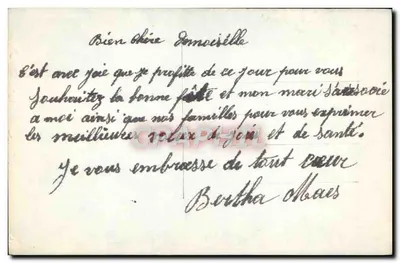 Bien chère demoiselle
C'est avec joie que je profitte de ce jour pour vous
souhaitez la bonne fête et mon mari s'associe
a moi ainsi que nos familles pour vous exprimer
les meilleure vœux de joie et de santé.
Je vous embrasse de tout cœur
Bertha Maes